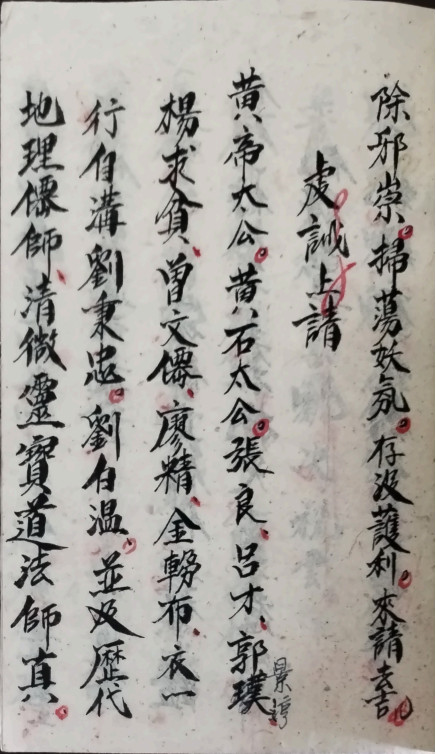 除邪祟。掃蕩妖氛。存没護利。來請去吉。
虔誠上請
黃帝太公。黃石太公。張良、呂才、郭璞
景鸞
楊求貧、曽文僊、廖精、金𫐉布、衣一
行自溝劉秉忠。劉白溫、並及歷代
地理僊師、清微靈寶道法師真。